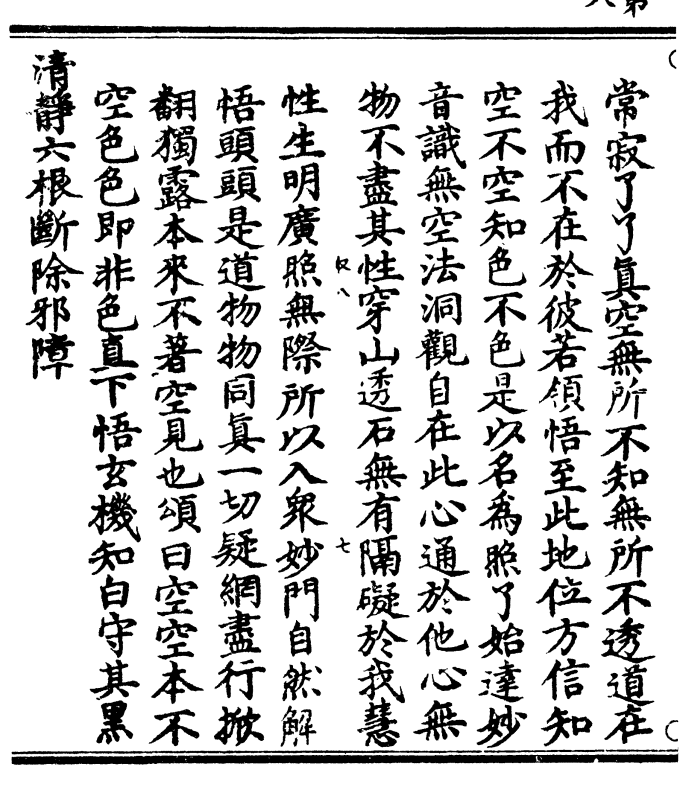 第八
常寂了了真空無所不知無所不透道在
我而不在於彼若領悟至此地位方信知
空不空知色不色是以名為照了始達妙
音識無空法洞觀自在此心通於他心無
物不盡其性穿山透石無有隔礙於我慧
性生明廣照無際所以入衆妙門自然解
悟頭頭是道物物同真一切疑網盡行掀
翻獨露本來不著空見也頌曰空空本不
空色色即非色直下悟玄機知白守其黑
清靜六根斷除邪障